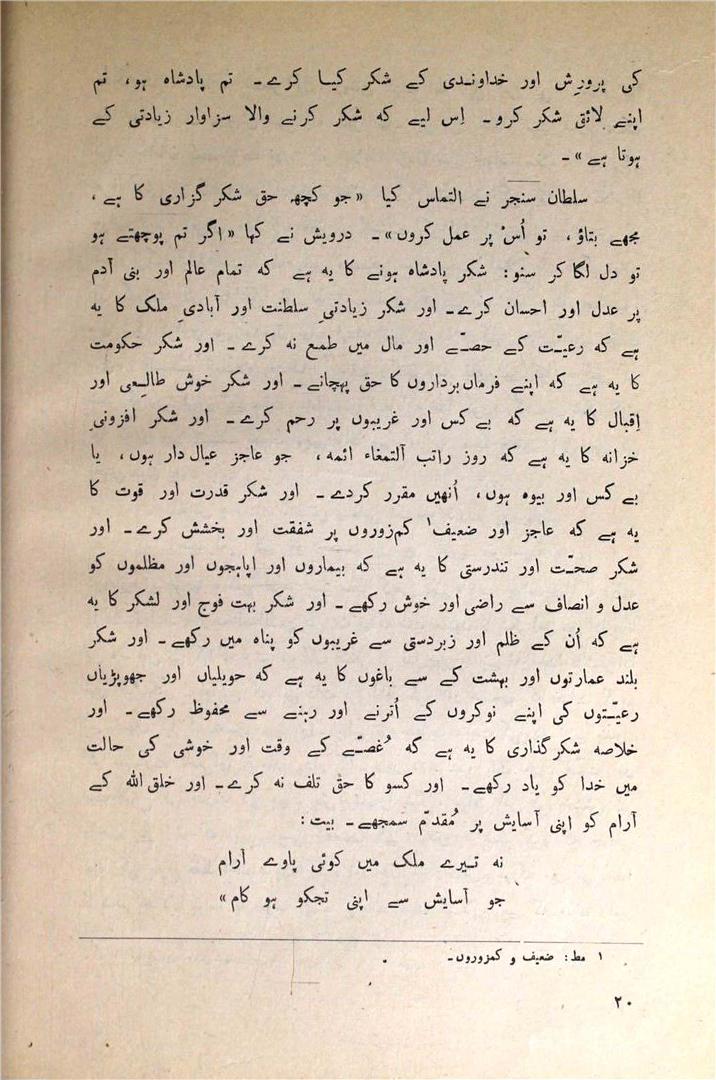 کی پرورِش اور خداوندی کے شکر کیا کرے۔ تم پادشاہ ہو، تم
اپنے لائق شکر کرو۔ اِس لیے کہ شکر کرنے والا سزاوار زیادتی کے
ہوتا ہے»۔
سلطان سنجر نے التماس کیا «جو کچھ حق شکر گزاری کا ہے،
مجھے بتاؤ، تو اُس پر عمل کروں»۔ درویش نے کہا «اگر تم پوچھتے ہو
تو دل لگا کر سنو: شکر پادشاہ ہونے کا یہ ہے کہ تمام عالم اور بنی آدم
پر عدل اور احسان کرے۔ اور شکر زیادتیِ سلطنت اور آبادیِ ملک کا یہ
ہے کہ رعیّت کے حصّے اور مال میں طمع نہ کرے۔ اور شکر حکومت
کا یہ ہے کہ اپنے فرماں برداروں کا حق پہچانے۔ اور شکر خوش طالِعی اور
اِقبال کا یہ ہے کہ بے کس اور غریبوں پر رحم کرے۔ اور شکر افزونیِ
خزانہ کا یہ ہے کہ روز راتب آلتمغاء ائمہ، جو عاجز عیال دار ہوں، یا
بے کس اور بیوہ ہوں، اُنھیں مقرر کردے۔ اور شکر قدرت اور قوت کا
یہ ہے کہ عاجز اور ضعیف۱ کم‌زوروں پر شفقت اور بخشش کرے۔ اور
شکر صحّت اور تندرستی کا یہ ہے کہ بیماروں اور اپاہجوں اور مظلموں کو
عدل و انصاف سے راضی اور خوش رکھے۔ اور شکر بہت فوج اور لشکر کا یہ
ہے کہ اُن کے ظلم اور زبردستی سے غریبوں کو پناہ میں رکھے۔ اور شکر
بلند عمارتوں اور بہشت کے سے باغوں کا یہ ہے کہ حویلیاں اور جھوپڑیاں
رعیّتوں کی اپنے نوکروں کے اُترنے اور رہنے سے محفوظ رکھے۔ اور
خلاصہ شکر گذاری کا یہ ہے کہ غُصّے کے وقت اور خوشی کی حالت
میں خدا کو یاد رکھے۔ اور کسو کا حق تلف نہ کرے۔ اور خلق اللہ کے
آرام کو اپنی آسایش پر مُقدّم سمجھے۔ بیت:
نہ تیرے ملک میں کوئی پاوے آرام
جو آسایش سے اپنی تجکو ہو کام»
۱ مط: ضعیف و کمزوروں۔
۲۰